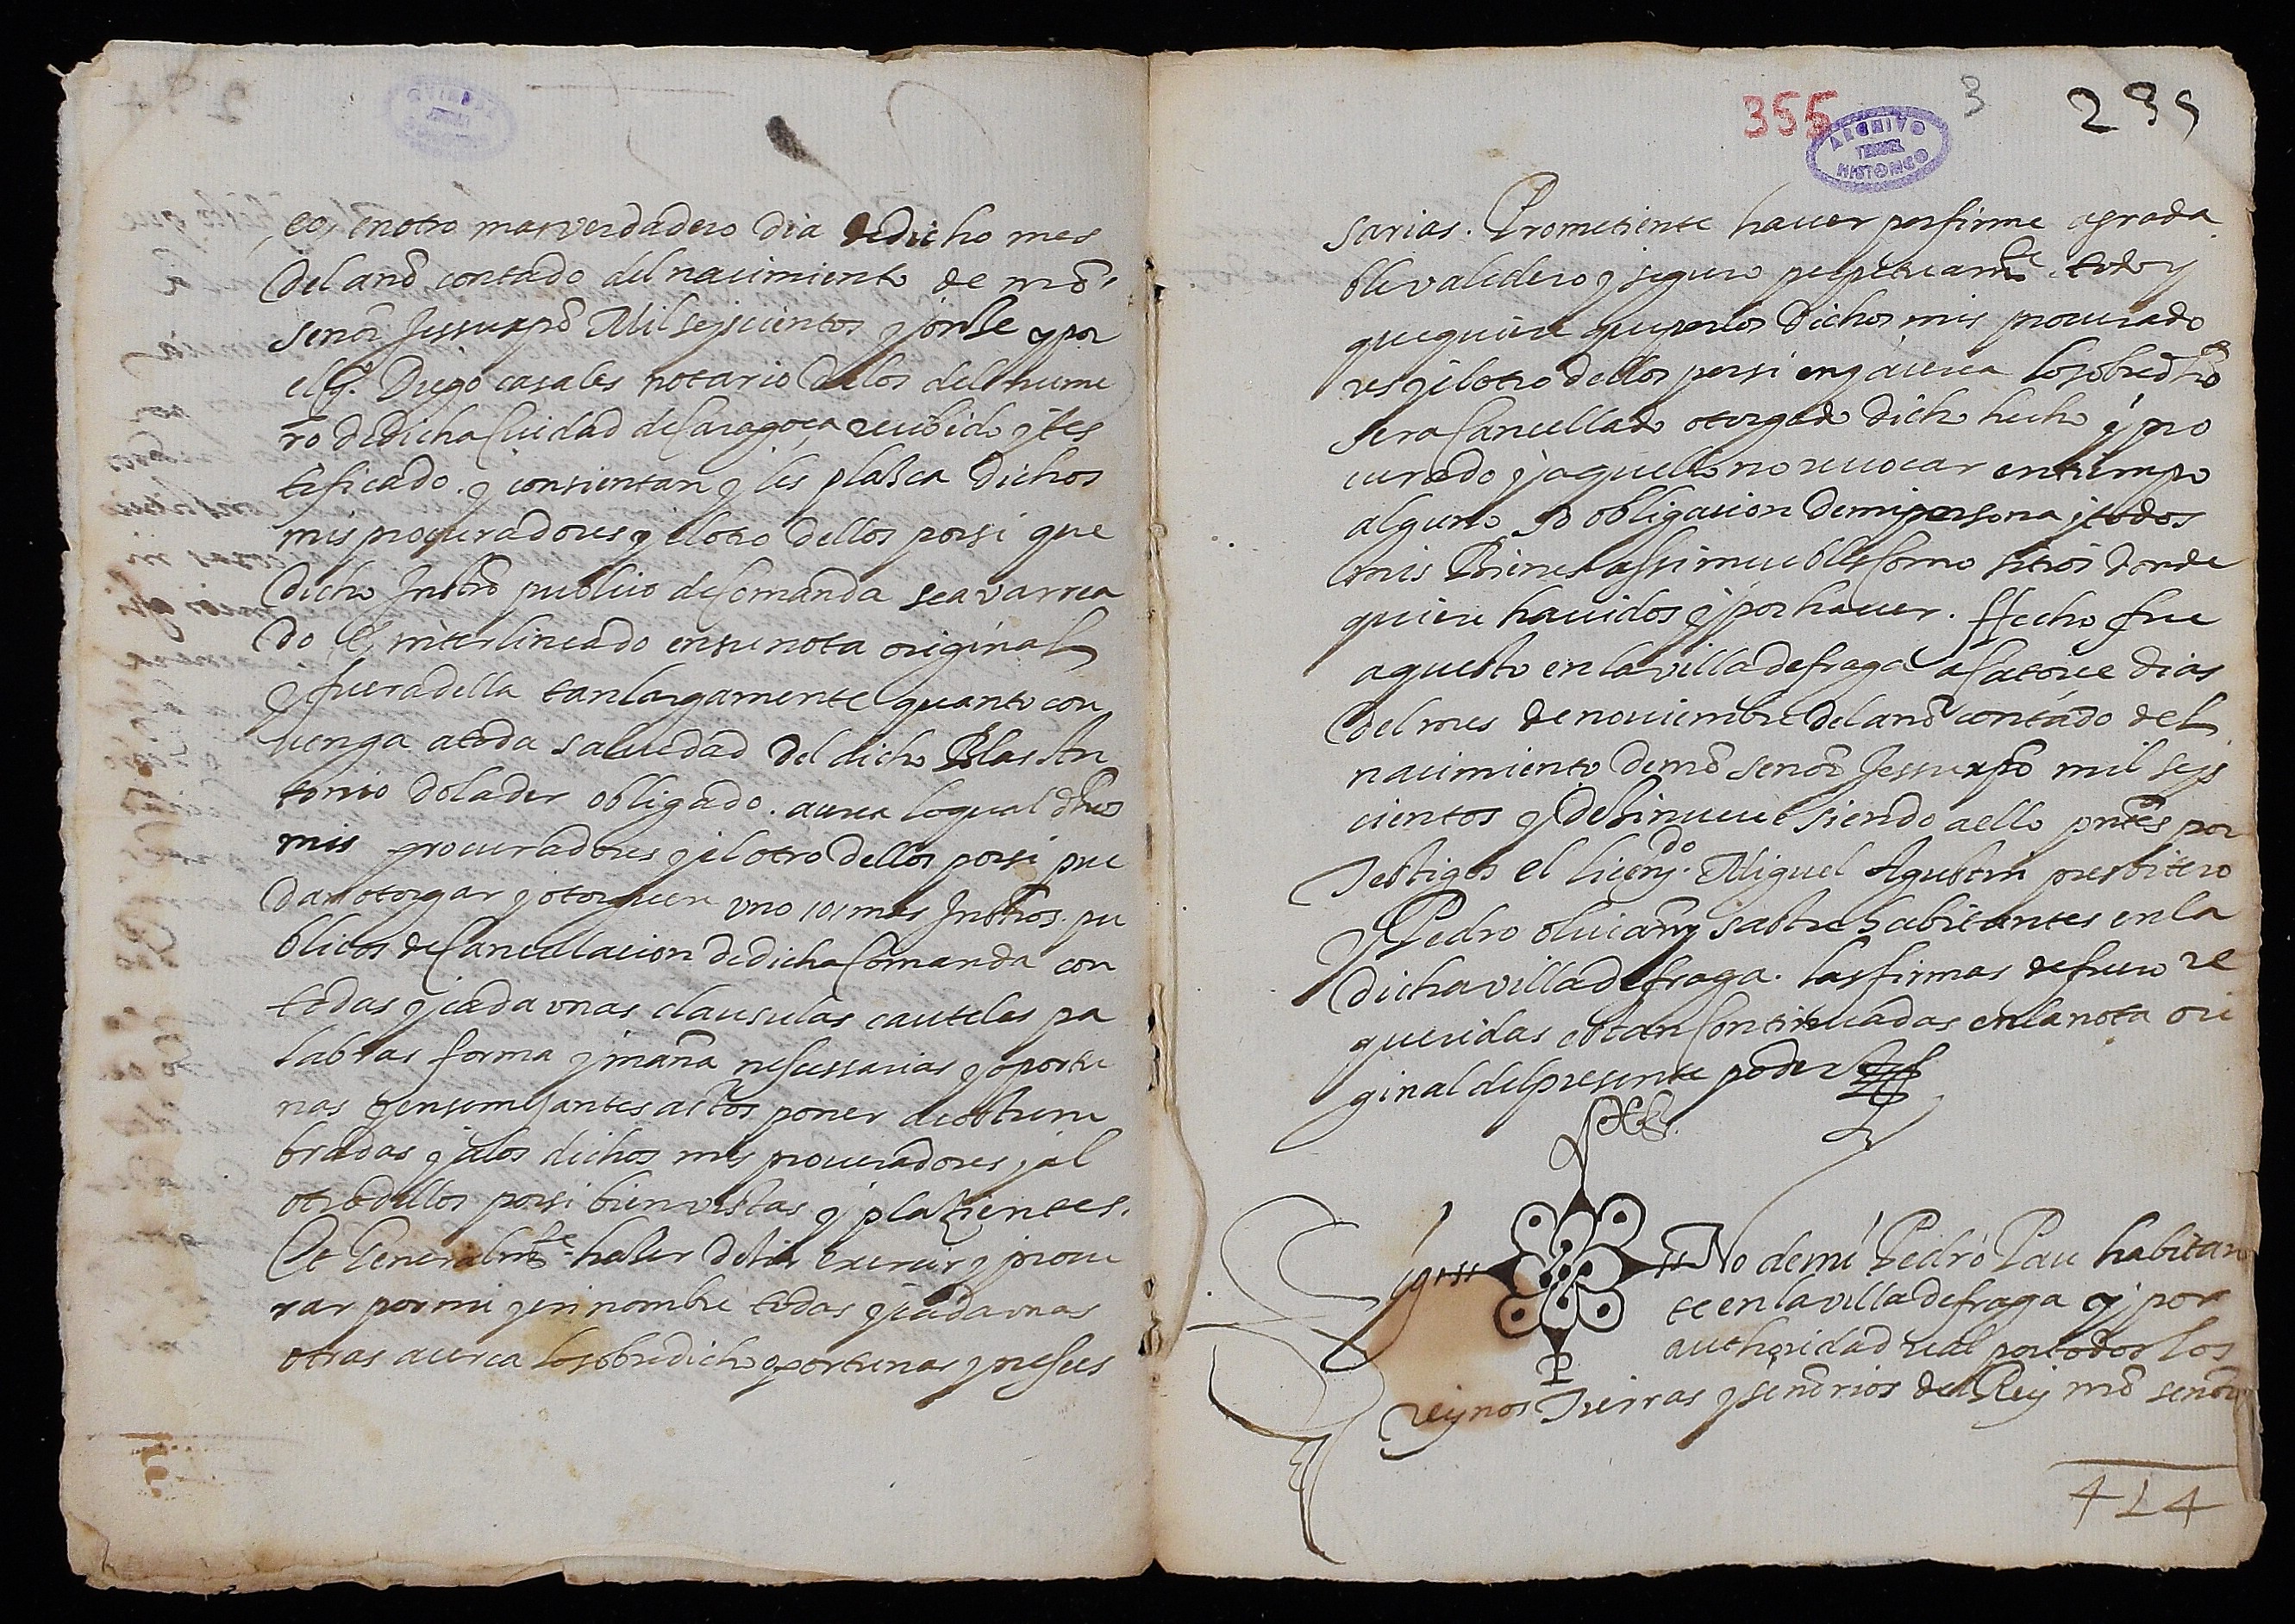 eo, en otro mas verdadero dia de dicho mes
del año contado del nacimiento de nr̃o
señor Jessuxpõ Mil seyscientos y onse y por
el q.º Diego casales notario de los del nume
ro de dicha Ciudad de Caragoça recibido y tes
tificado. y consientan y les plasca dichos
mis procuradores y el otro dellos por si que
dicho Instrõ publico de Comanda sea varrea
do e interlineado en su nota original
y fuera della tan largamente quanto con
uenga a toda saluedad del dicho Blas An
tonio dolader obligado. acerca lo qual dhos
mis procuradores y el otro dellos por si pue
dan otorgar y otorguen uno o mas Instrõs. pu
blicos de Cancellacion de dicha Comanda con
todas y cada unas clausulas cautelas pa
labras forma y mañа nesessarias y oportu
nas y en semejantes actos poner acostum
bradas y a los dichos mis procuradores y al
otro dellos por si bien vistas y plazientes.
Et Generalmte haser desir exercir y procu
rar por mi y en nombre todas y cada unas
otras acerca lo sobredicho oportunas y neses
355
3
235
ARCHIVO
TERUEL
HISTORICO
sarias. Prometiente hauer por firme agrada
ble valedero y seguro perpetuamte todo y
que quiere que por los dichos mis procurado
res y el otro dellos por si en y acerca lo sobredho
sera Cancellado otorgado dicho hecho y pro
curado y aquello no reuocar en tiempo
alguno so obligacion de mi persona y todos
mis Bienes assi muebles Como sitios donde
quiere hauidos y por hauer. ffecho fue
aquesto en la villa de fraga a Catorce dias
del mes de nouiembre del año contado del
nacimiento de nr̃o señor Jessuxpõ mil seys
cientos y desinueue siendo a ello pntes por
Testigos el licendo. Miguel Agustin presbitero
y Pedro oliuan y sastre habitantes en la
dicha villa de fraga. las firmas de fuero re
queridas estan Continuadas en la nota ori
ginal del presente poder
Sig no de mi Pedro Pau habitan
te en la villa de fraga y por
authoridad real por todos los
reynos Tierras y señorios del Rey nr̃o señor
414